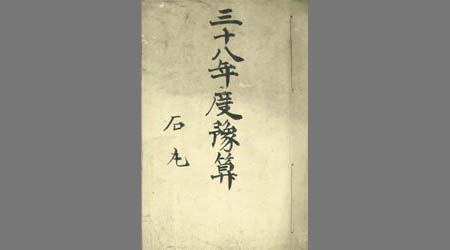 三十八年度豫算
石丸